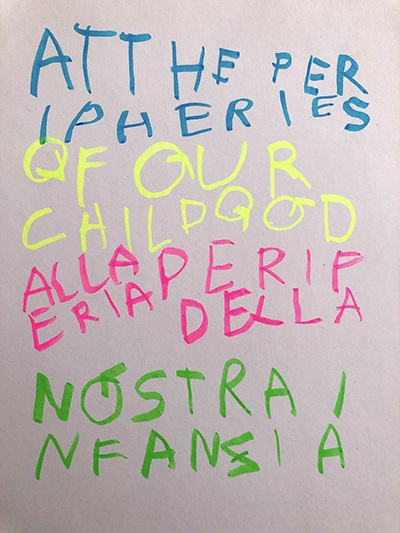 ATTHE PER
IPHERIES
OF OUR
CHILDQOD
ALLAPERIF
ERIA DELLA
NOSTRA I
NFANZIA